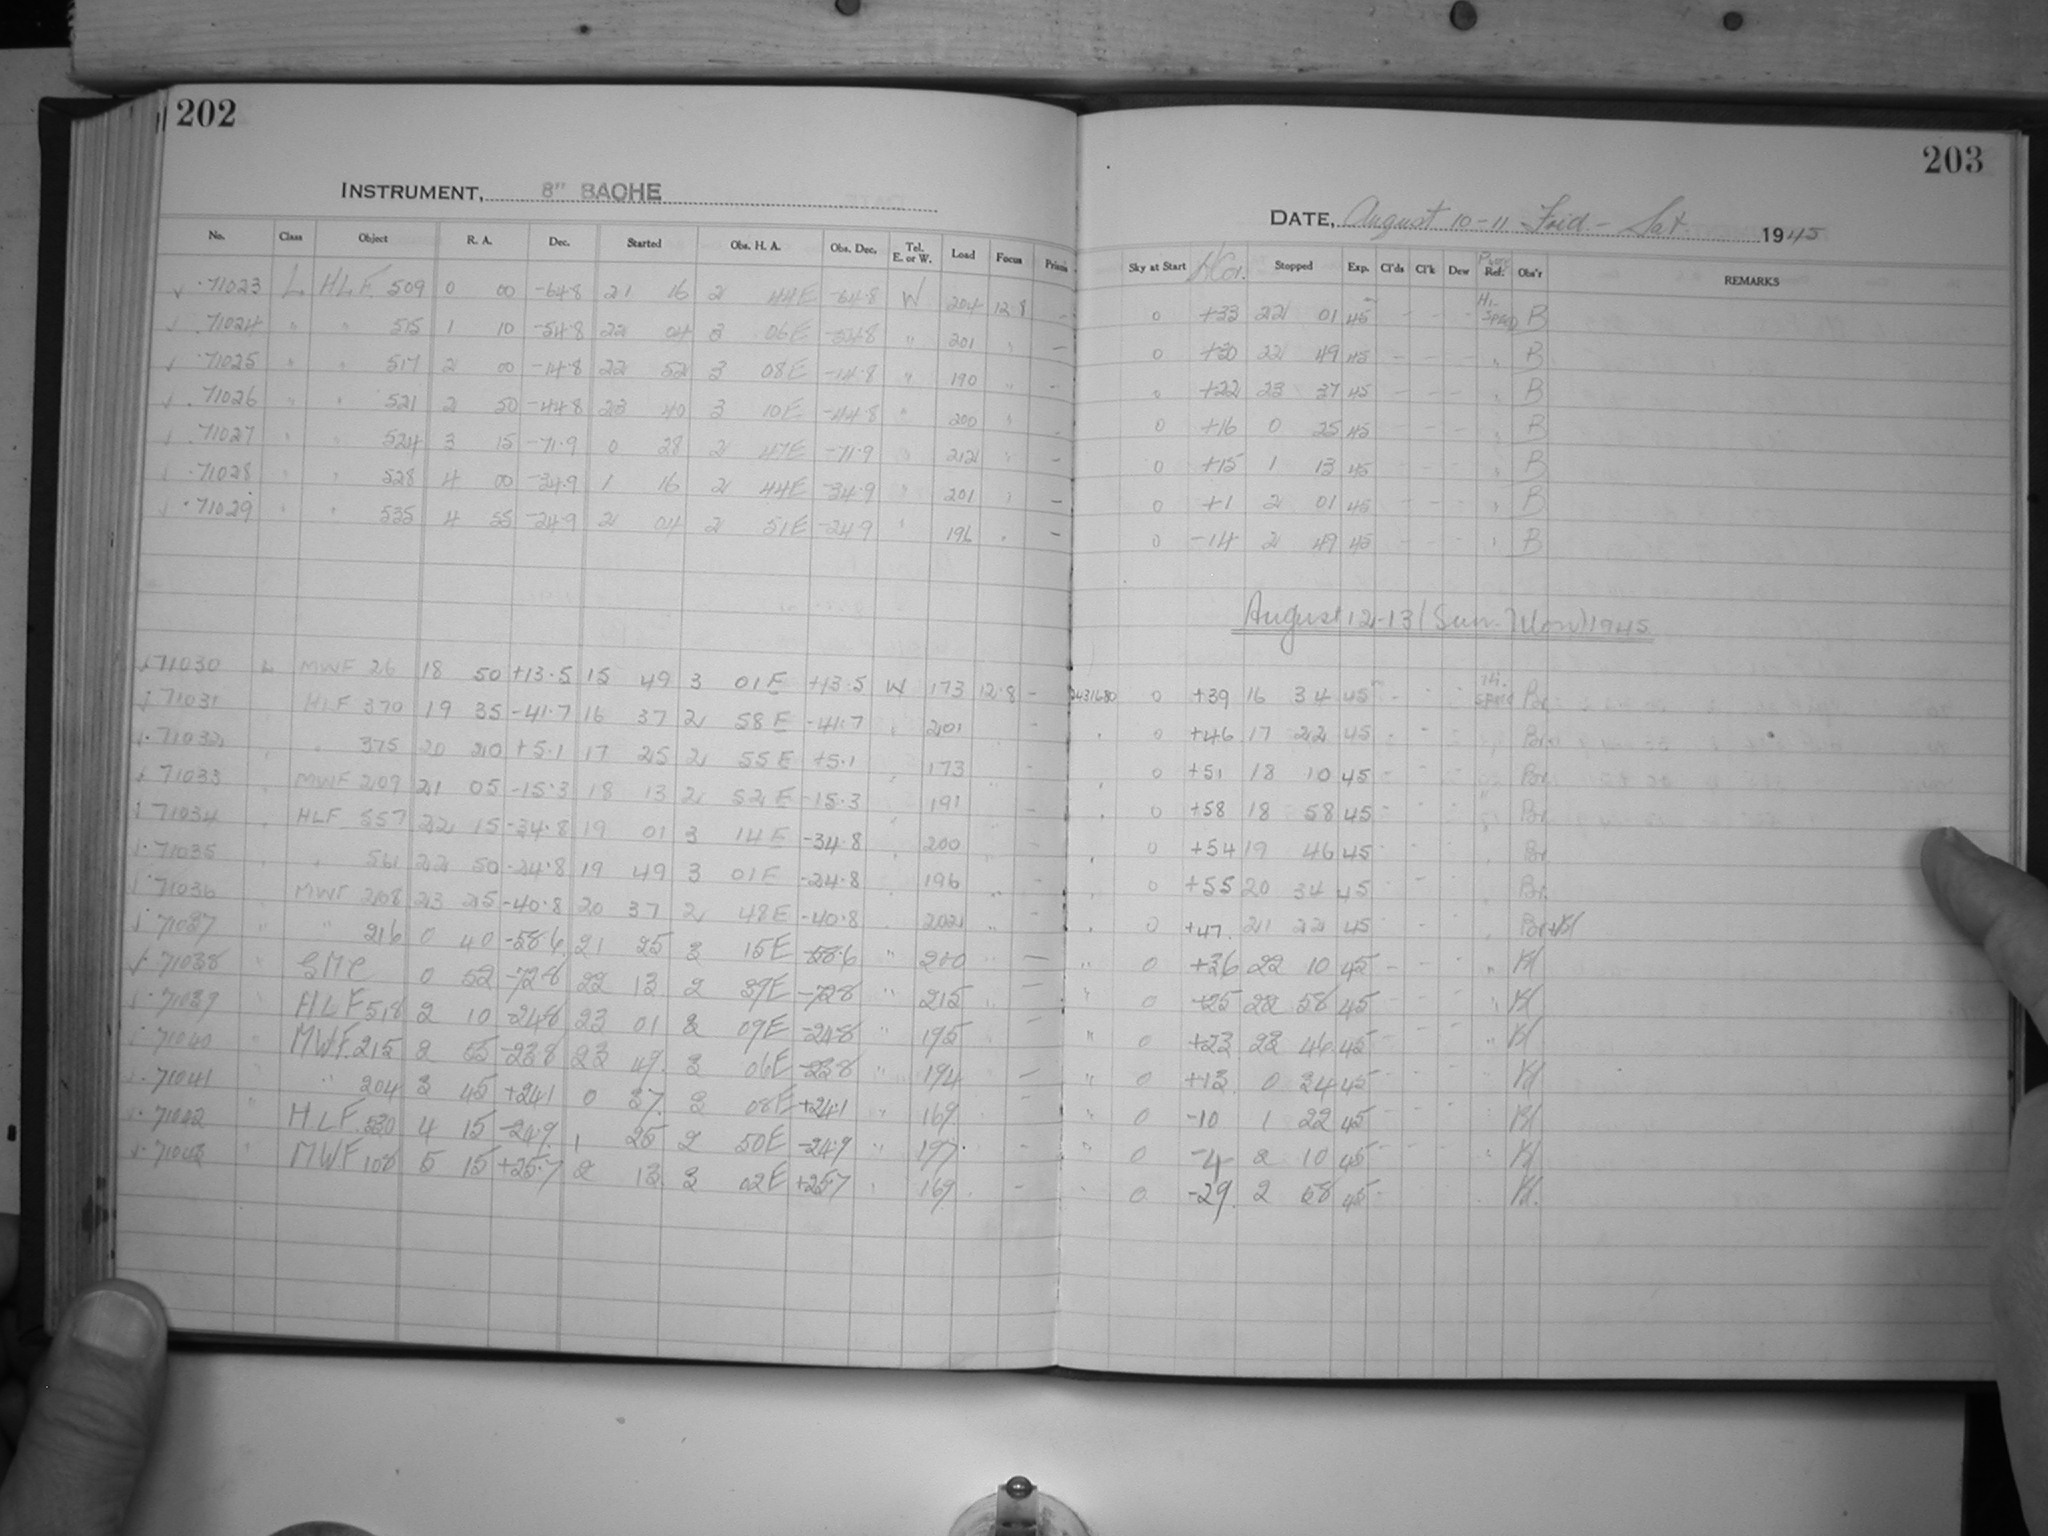 202
INSTRUMENT, 8" BACHE
No. Class Object R. A. Dec. Started Obs. H. A. Obs. Dec. Tel. E. or W. Load Focus Prism
71023 L HLF 509 0 00 -64.8 21 16 2 44E -64.8 W 204 12.8 -
71024 " " 515 1 10 -54.8 22 04 3 06E -54.8 " 201 " -
71025 " " 517 2 00 -14.8 22 52 3 08E -14.8 " 190 " -
71026 " " 521 2 50 -44.8 23 40 3 10E -44.8 " 200 " -
71027 " " 524 3 15 -71.9 0 28 2 47E -71.9 " 212 " -
71028 " " 528 4 00 -34.9 1 16 2 44E -34.9 " 201 " -
71029 " " 535 4 55 -24.9 2 04 2 51E -24.9 " 196 " -
71030 L MWF 26 18 50 +13.5 15 49 3 01E +13.5 W 173 12.8 -
71031 " HLF 370 19 35 -41.7 16 37 2 58E -41.7 " 201 " -
71032 " " 375 20 20 +5.1 17 25 2 55E +5.1 " 173 " -
71033 " MWF 209 21 05 -15.3 18 13 2 52E -15.3 " 191 " -
71034 " HLF 557 22 15 -34.8 19 01 3 14E -34.8 " 200 " -
71035 " " 561 22 50 -24.8 19 49 3 01E -24.8 " 196 " -
71036 " MWF 208 23 25 -40.8 20 37 2 48E -40.8 " 202 " -
71037 " " 216 0 40 -58.6 21 25 3 15E -58.6 " 200 " -
71038 " SMC 0 52 -72.8 22 13 2 39E -72.8 " 215 " -
71039 " HLF 518 2 10 -24.8 23 01 3 09E -24.8 " 195 " -
71040 " MWF 215 2 55 -23.8 23 49 3 06E -23.8 " 194 " -
71041 " " 204 3 45 +24.1 0 37 3 08E +24.1 " 169 " -
71042 " HLF 530 4 15 -24.9 1 25 2 50E -24.9 " 197 " -
71043 " MWF 108 5 15 +25.7 2 13 3 02E +25.7 " 169 " -
203
DATE, August 10-11 Frid.- Sat. 1945
Sky at Start H Cor. Stopped Exp. Cl'ds Cl'k Dew Ref: Obs'r REMARKS
0 +33 22 01 45 - - - Hi-Speed B
0 +30 22 49 45 - - - " B
0 +22 23 37 45 - - - " B
0 +16 0 25 45 - - - " B
0 +15 1 13 45 - - - " B
0 +1 2 01 45 - - - " B
0 -14 2 49 45 - - - " B
August 12-13 (Sun-Mon) 1945
2431680 0 +39 16 34 45 - - - Hi-Speed Br.
" 0 +46 17 22 45 - - - " Br.
" 0 +51 18 10 45 - - - " Br.
" 0 +58 18 58 45 - - - " Br.
" 0 +54 19 46 45 - - - " Br
" 0 +55 20 34 45 - - - " Br.
" 0 +47 21 22 45 - - - " Br+Kl
" 0 +36 22 10 45 - - - " Kl
" 0 +25 22 58 45 - - - " Kl
" 0 +23 23 46 45 - - - " Kl
" 0 +13 0 34 45 - - - " Kl
" 0 -10 1 22 45 - - - " Kl
" 0 -4 2 10 45 - - - " Kl
" 0 -29 2 58 45 - - - " Kl.